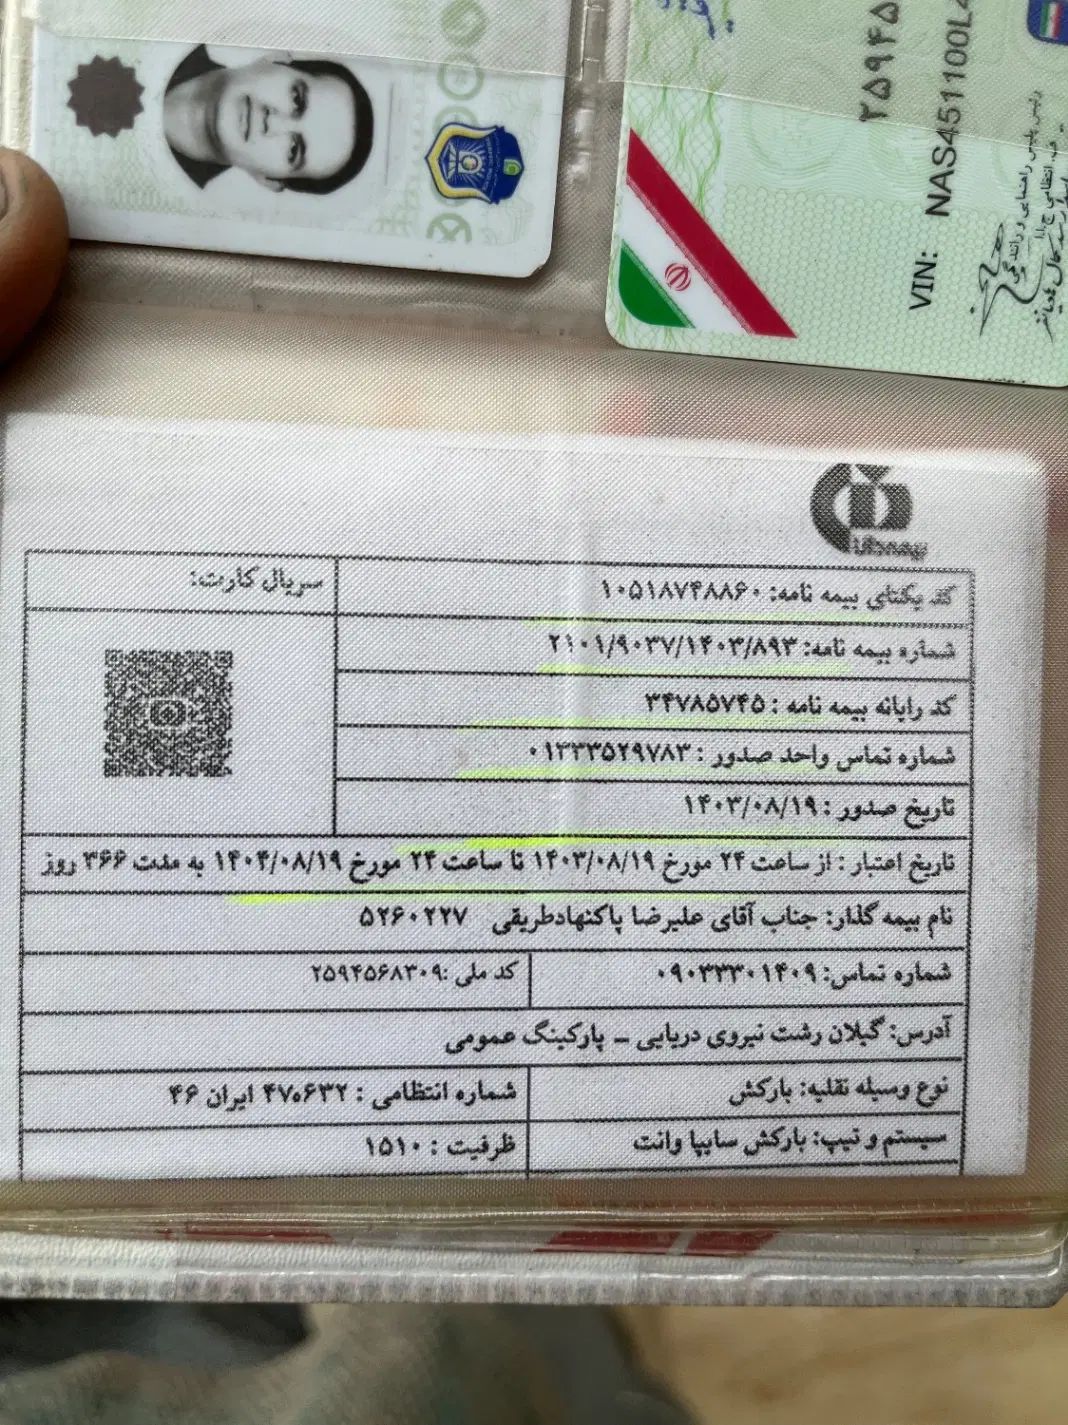 ۲۵۹۴۵
VIN: NAS451100L4
رئیس پلیس راهنمایی و رانندگی
بیمه دانا
کد یکتای بیمه نامه: ۱۰۵۱۸۷۴۸۸۶۰
سریال کارت:
شماره بیمه نامه: ۲۱۰۱/۹۰۳۷/۱۴۰۳/۸۹۳
کد رایانه بیمه نامه : ۳۴۷۸۵۷۴۵
شماره تماس واحد صدور : ۰۱۳۳۳۵۲۹۷۸۳
تاریخ صدور : ۱۴۰۳/۰۸/۱۹
تاریخ اعتبار : از ساعت ۲۴ مورخ ۱۴۰۳/۰۸/۱۹ تا ساعت ۲۴ مورخ ۱۴۰۴/۰۸/۱۹ به مدت ۳۶۶ روز
نام بیمه گذار: جناب آقای علیرضا پاکنهادطریقی ۵۲۶۰۲۲۷
شماره تماس: ۰۹۰۳۳۳۰۱۴۰۹
کد ملی :۲۵۹۴۵۶۸۳۰۹
آدرس: گیلان رشت نیروی دریایی – پارکینگ عمومی
نوع وسیله نقلیه: بارکش
شماره انتظامی : ۴۷۰۶۳۲ ایران ۴۶
سیستم و تیپ: بارکش سایپا وانت
ظرفیت : ۱۵۱۰